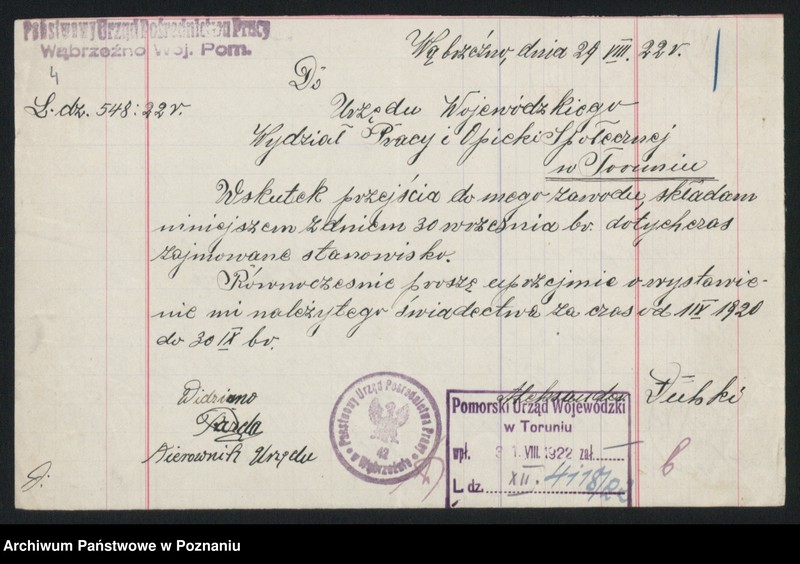 Państwowy Urząd Pośrednictwa Pracy
Wąbrzeźno Woj. Pom.
4
Wąbrzeźno, dnia 29 VIII. 22 r.
L. dz. 548:22 r.
Do
Urzędu Wojewódzkiego
Wydział Pracy i Opieki Społecznej
w Toruniu
Wskutek przejścia do mego zawodu, składam
niniejszem z dniem 30 września br. dotychczas
zajmowane stanowisko.
Równocześnie proszę uprzejmie o wystawie-
nie mi należytego świadectwa za czas od 1 IV 1920
do 30 IX br.
Widziano
Kierownik Urzędu
Aleksander Dubski
Państwowy Urząd Pośrednictwa Pracy
42
w Wąbrzeźnie
Pomorski Urząd Wojewódzki
w Toruniu
wpł. 31. VIII. 1922 zał.
L. dz. XII. 4118/22
Archiwum Państwowe w Poznaniu